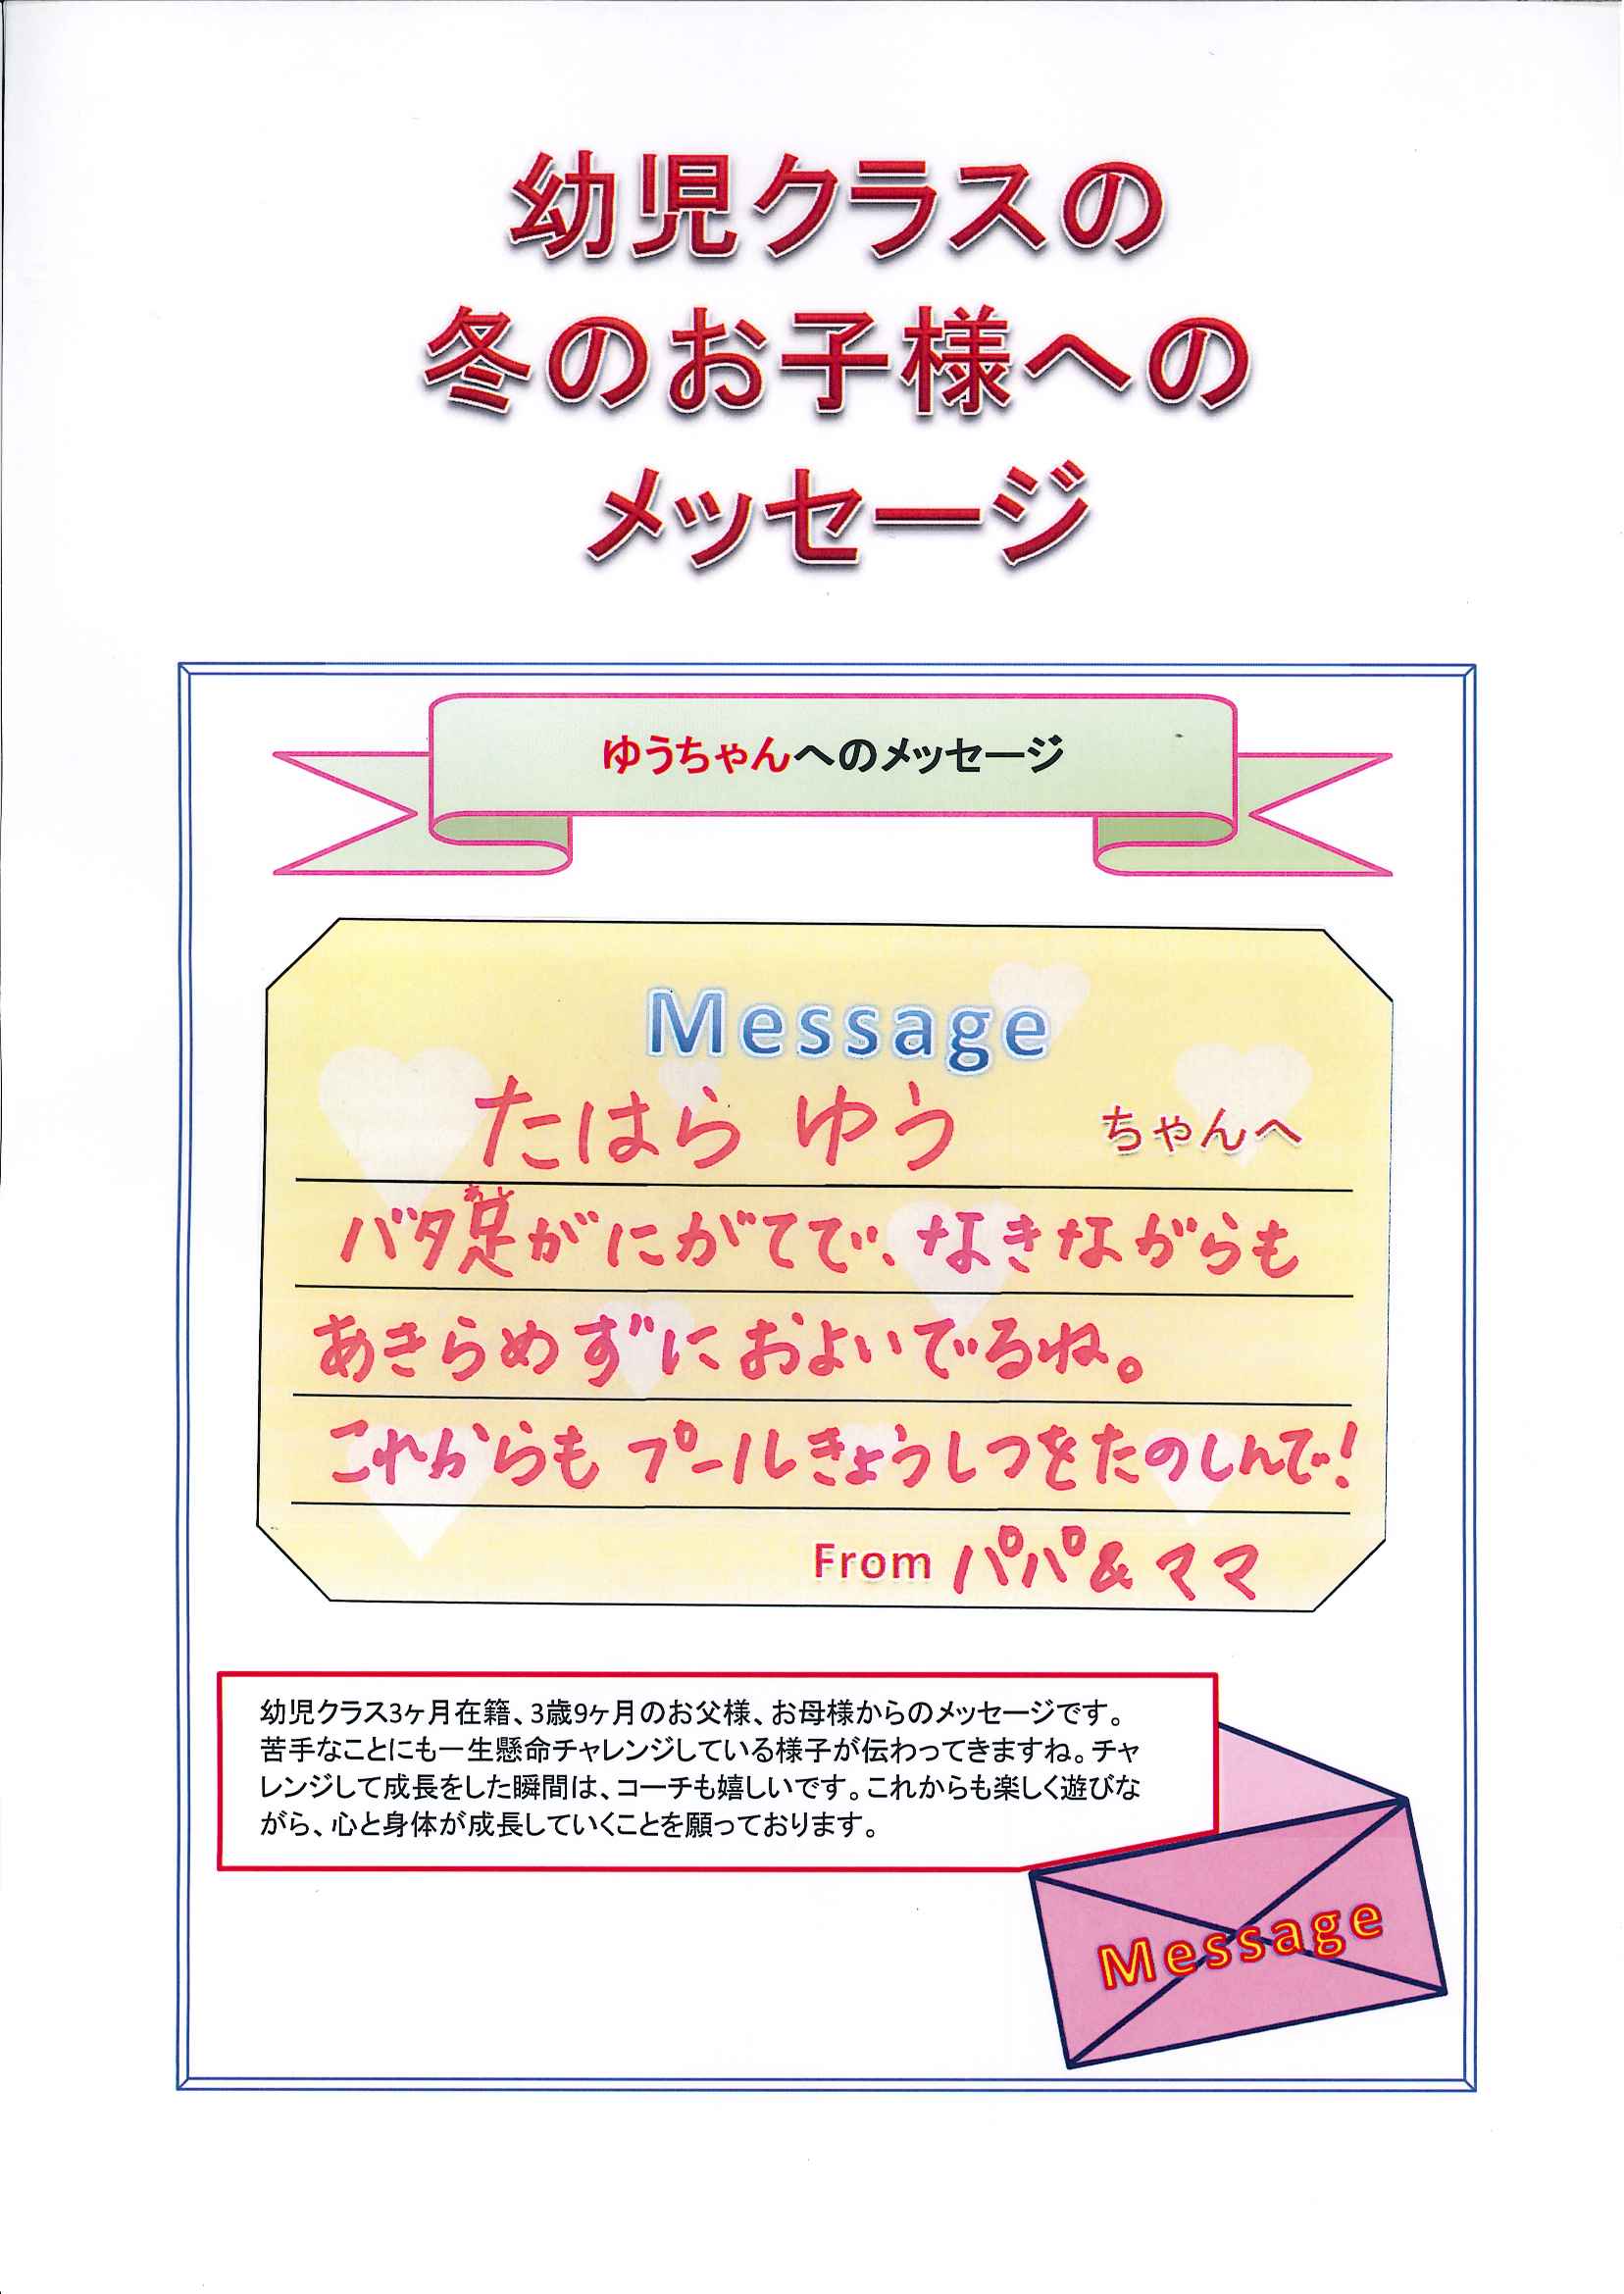 幼児クラスの
冬のお子様への
メッセージ
ゆうちゃんへのメッセージ
Message
たはら ゆう ちゃんへ
あし
バタ足がにがてで、なきながらも
あきらめずにおよいでるね。
これからもプールきょうしつをたのしんで!
From パパ&ママ
幼児クラス3ヶ月在籍、3歳9ヶ月のお父様、お母様からのメッセージです。
苦手なことにも一生懸命チャレンジしている様子が伝わってきますね。チャ
レンジして成長をした瞬間は、コーチも嬉しいです。これからも楽しく遊びな
がら、心と身体が成長していくことを願っております。
Message